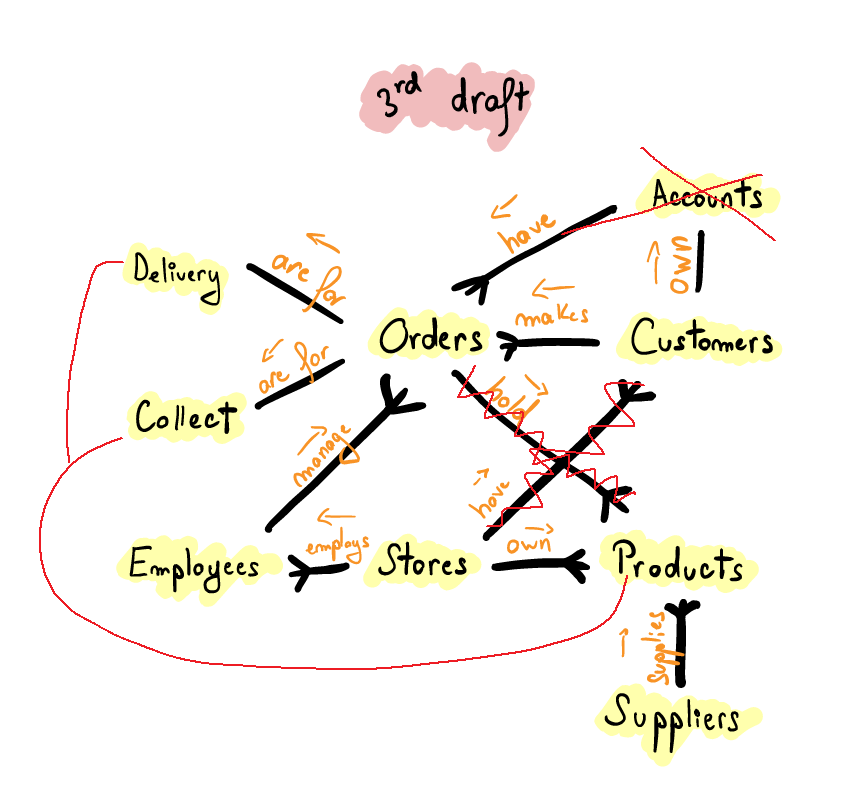 3rd draft
Accounts
have
own
are for
Delivery
makes
Orders
Customers
are for
hold
Collect
manage
have
employs
own
Employees
Stores
Products
supplies
Suppliers